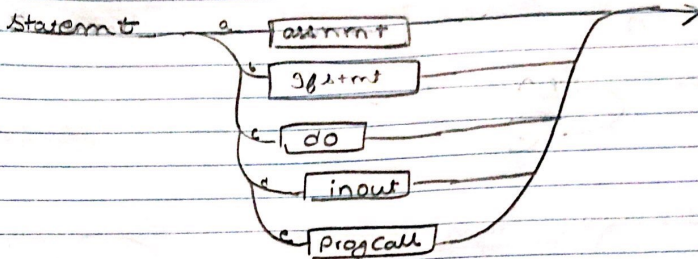 statemnt a assnmt
b Ifstmt
c do
d inout
e ProgCall